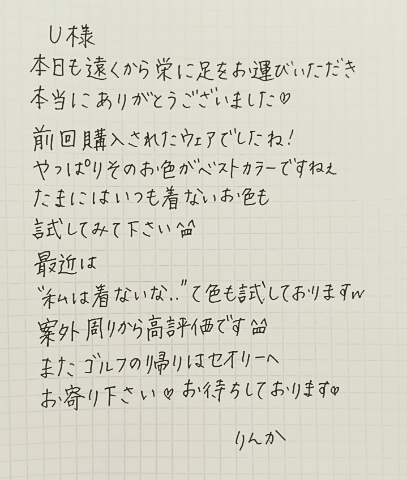 U様
本日も遠くから栄に足をお運びいただき
本当にありがとうございました♡
前回購入されたウェアでしたね！
やっぱりそのお色がベストカラーですねぇ
たまにはいつも着ないお色も
試してみて下さい^^
最近は
"私は着ないな.."て色も試しておりますw
案外周りから高評価です^^
またゴルフの帰りはセオリーへ
お寄り下さい♡お待ちしております♡
りんか